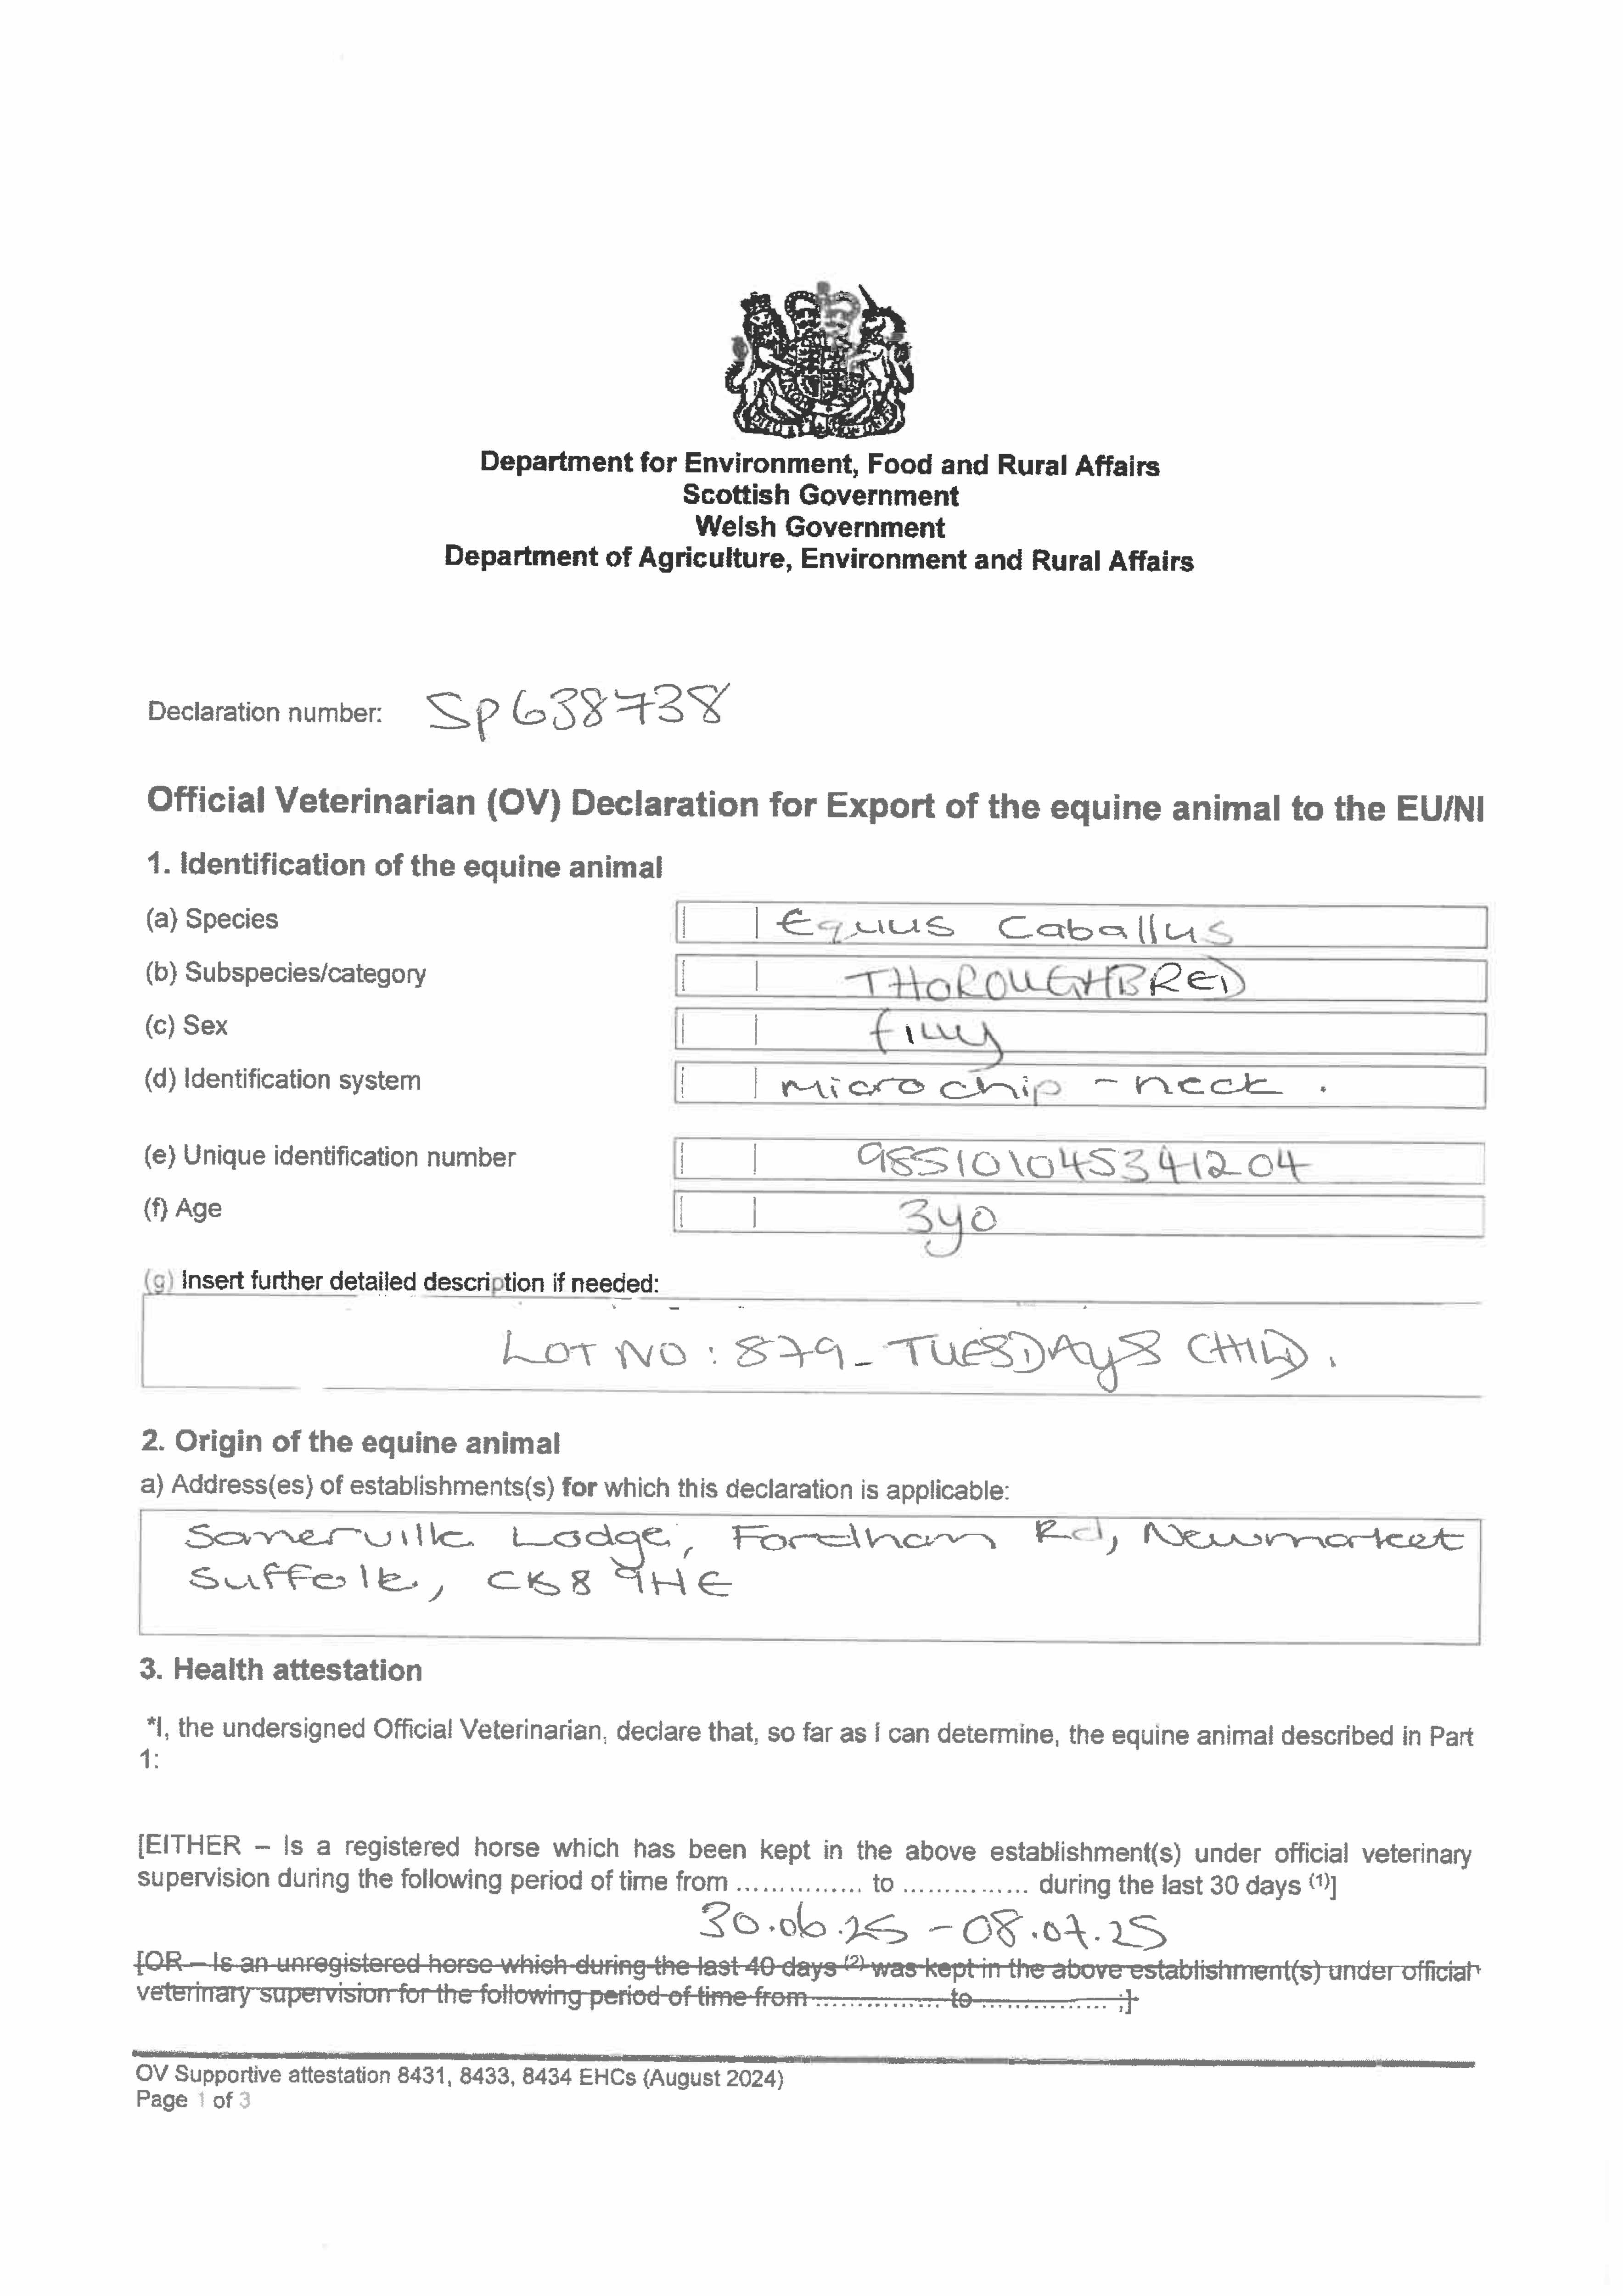 Department for Environment, Food and Rural Affairs
Scottish Government
Welsh Government
Department of Agriculture, Environment and Rural Affairs
Declaration number: SP638738
Official Veterinarian (OV) Declaration for Export of the equine animal to the EU/NI
1. Identification of the equine animal
(a) Species Equus Caballus
(b) Subspecies/category THOROUGHBRED
(c) Sex filly
(d) Identification system Microchip - neck .
(e) Unique identification number 985101045341204
(f) Age 3yo
(g) Insert further detailed description if needed:
LOT NO : 879 - TUESDAYS CHILD .
2. Origin of the equine animal
a) Address(es) of establishments(s) for which this declaration is applicable:
Somerville Lodge, Fordham Rd, Newmarket
Suffolk, CB8 9HE
3. Health attestation
*I, the undersigned Official Veterinarian, declare that, so far as I can determine, the equine animal described in Part
1:
[EITHER – Is a registered horse which has been kept in the above establishment(s) under official veterinary
supervision during the following period of time from ............... to ............... during the last 30 days (1)]
30.06.25 - 08.07.25
[OR – Is an unregistered horse which during the last 40 days (2) was kept in the above establishment(s) under official
veterinary supervision for the following period of time from ............... to ............... ;]
OV Supportive attestation 8431, 8433, 8434 EHCs (August 2024)
Page 1 of 3